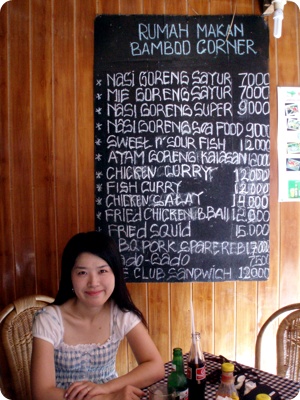 RUMAH MAKAN
BAMBOO CORNER
* NASI GORENG SAYUR 7000
* MIE GORENG SAYUR 7000
* NASI GORENG SUPER 9000
* NASI GORENG SEA FOOD 9000
* SWEET N' SOUR FISH 12000
* AYAM GORENG KALASAN
* CHICKEN CURRY 12000
* FISH CURRY 12000
* CHICKEN SATAY 14000
* FRIED CHICKEN B.BALI 12000
FRIED SQUID 15.000
BBQ PORK SPARE REB
GADO-GADO
CLUB SANDWICH 12000